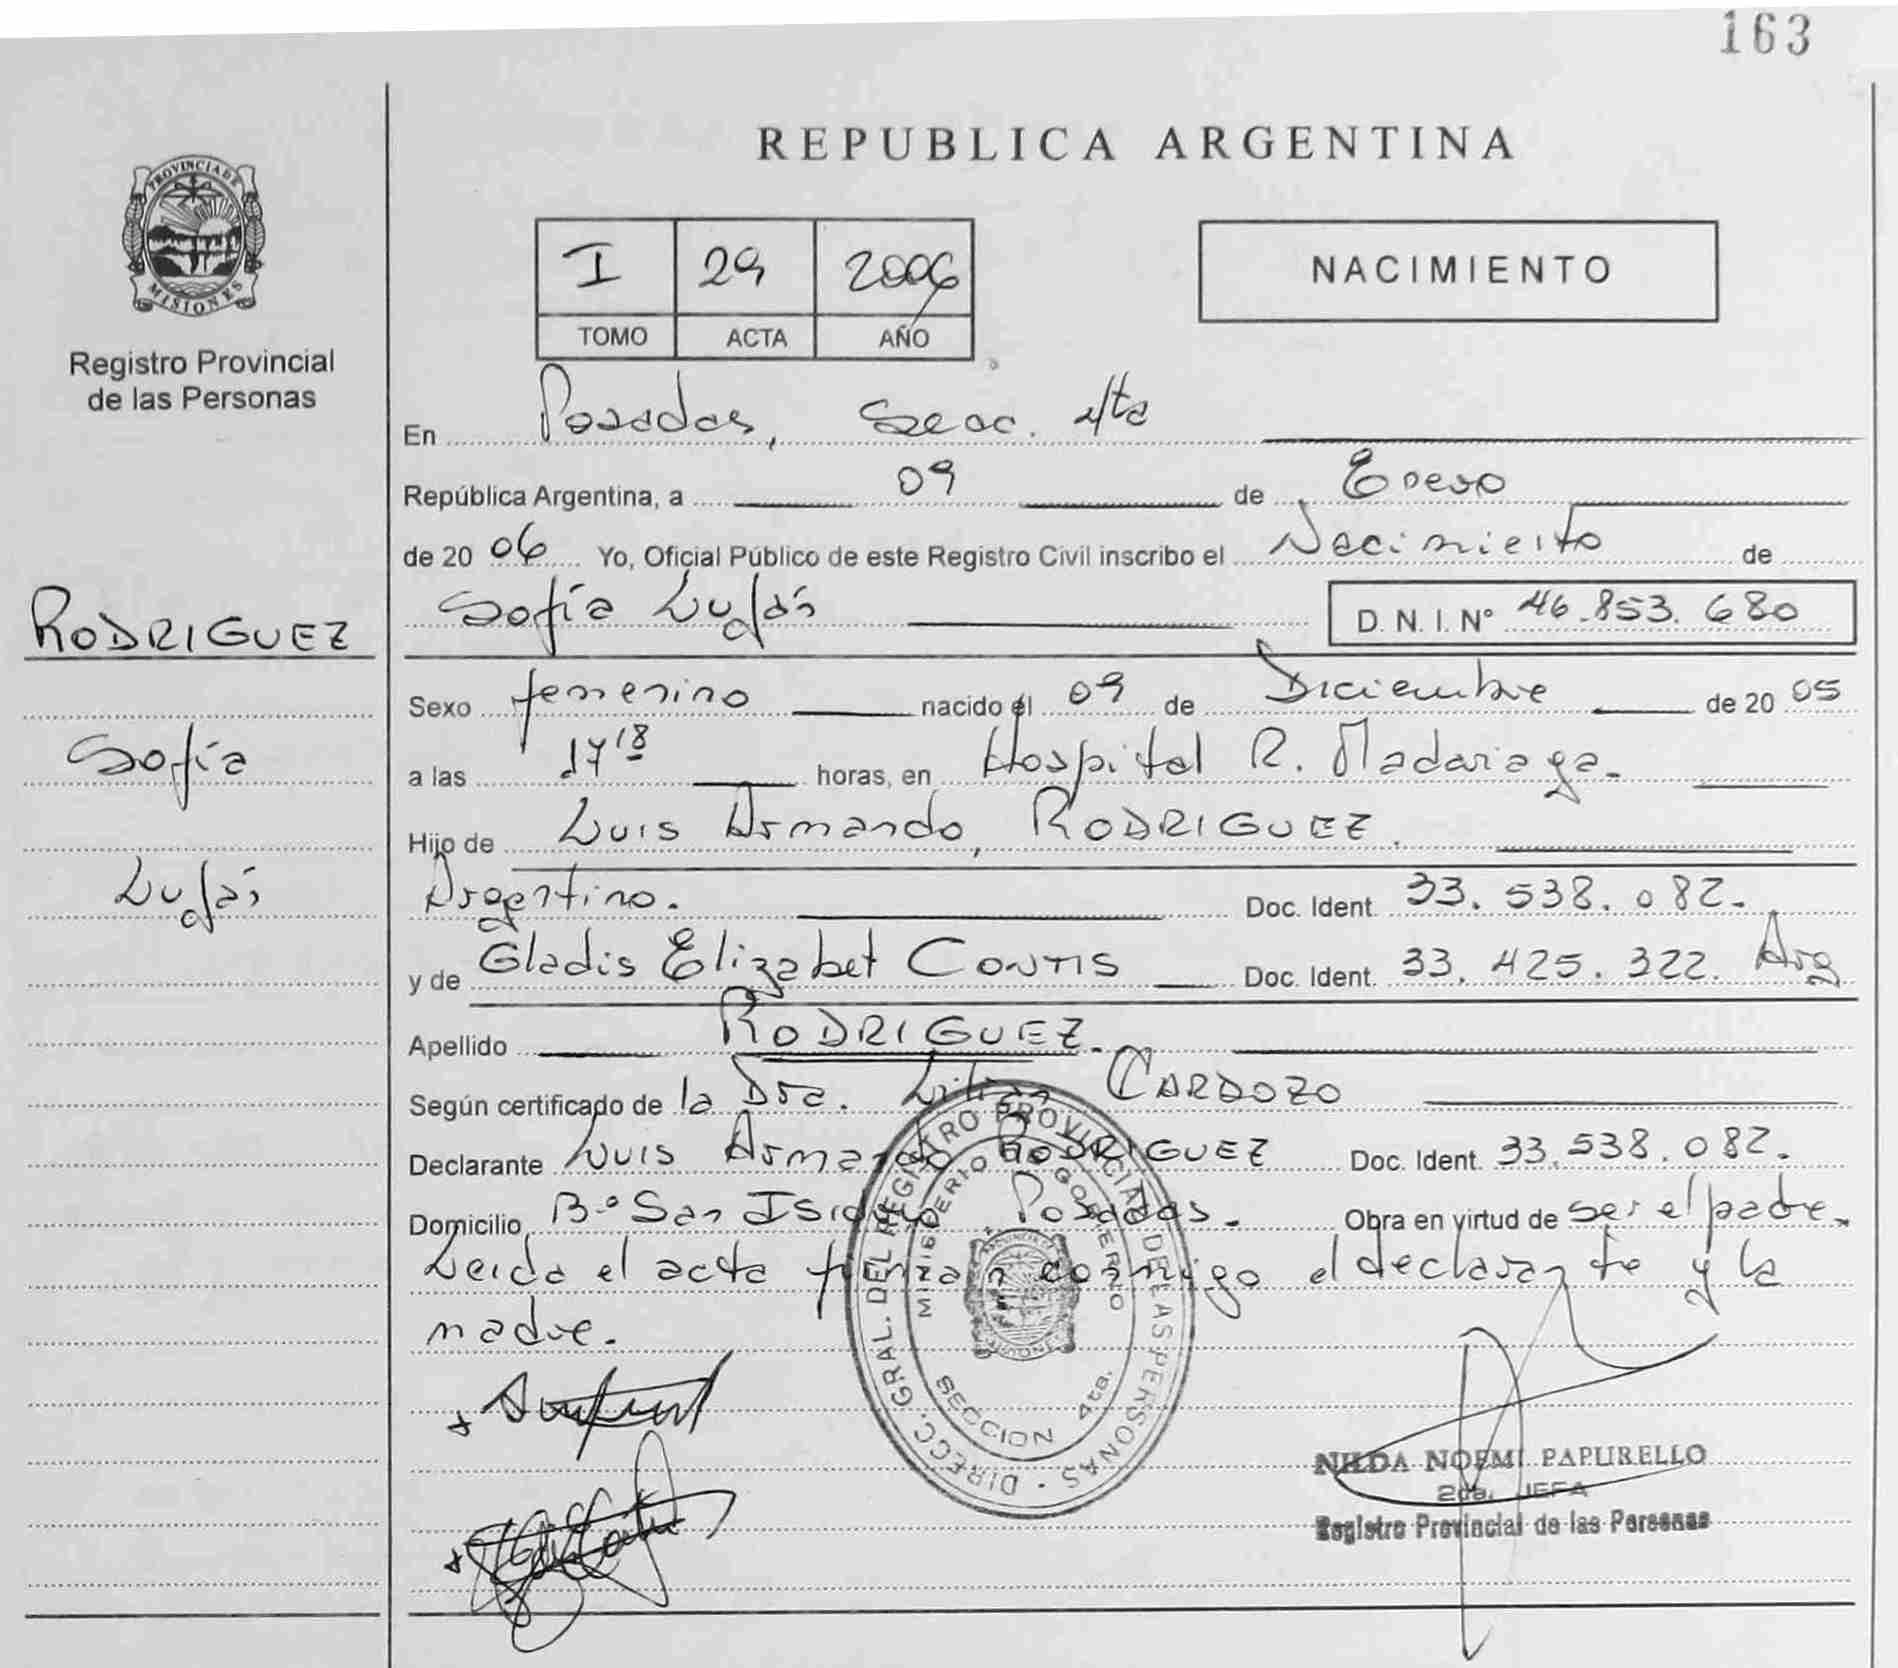 163
REPUBLICA ARGENTINA
PROVINCIA DE MISIONES
Registro Provincial
de las Personas
I 29 2006
TOMO ACTA AÑO
NACIMIENTO
En Posadas, Secc. 4ta
República Argentina, a 09 de Enero
de 2006 Yo, Oficial Público de este Registro Civil inscribo el Nacimiento de
RODRIGUEZ
Sofía Luján D. N. I. Nº 46.853.680
Sexo femenino nacido el 09 de Diciembre de 2005
Sofía
a las 17 18 horas, en Hospital R. Madariaga.
Hijo de Luis Armando, RODRIGUEZ.
Luján
Argentino. Doc. Ident. 33.538.082.
y de Gladis Elizabet Doc. Ident. 33.425.322. Arg
Apellido RODRIGUEZ.
Según certificado de la Dra. Lilian CARDOZO
Declarante Luis Armando RODRIGUEZ Doc. Ident. 33.538.082.
Domicilio Bº San Isidro Posadas. Obra en virtud de ser el padre.
Leida el acta firman conmigo el declarante y la
madre.
DIRECC. GRAL. DEL REGISTRO PROVINCIAL DE LAS PERSONAS
MINISTERIO DE GOBIERNO
PROVINCIA DE MISIONES
SECCION 4ta.
NILDA NOEMI PAPURELLO
2da. JEFA
Registro Provincial de las Personas